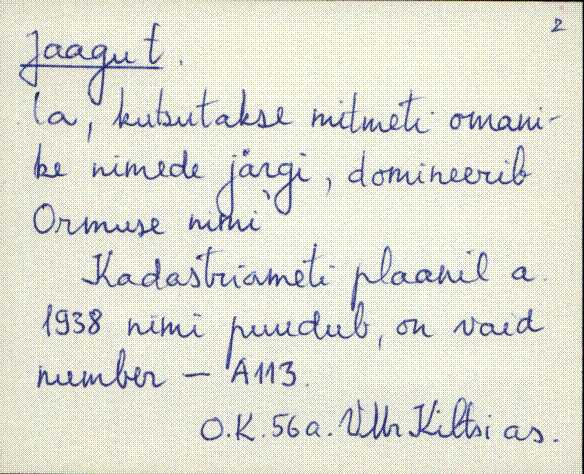 2
Jaagu t.
la, kutsutakse mitmeti omani-
ke nimede järgi, domineerib
Ormuse nimi
Kadastriameti plaanil a.
1938 nimi puudub, on vaid
number – A113.
O.K. 56a. VMr Kiltsi as.